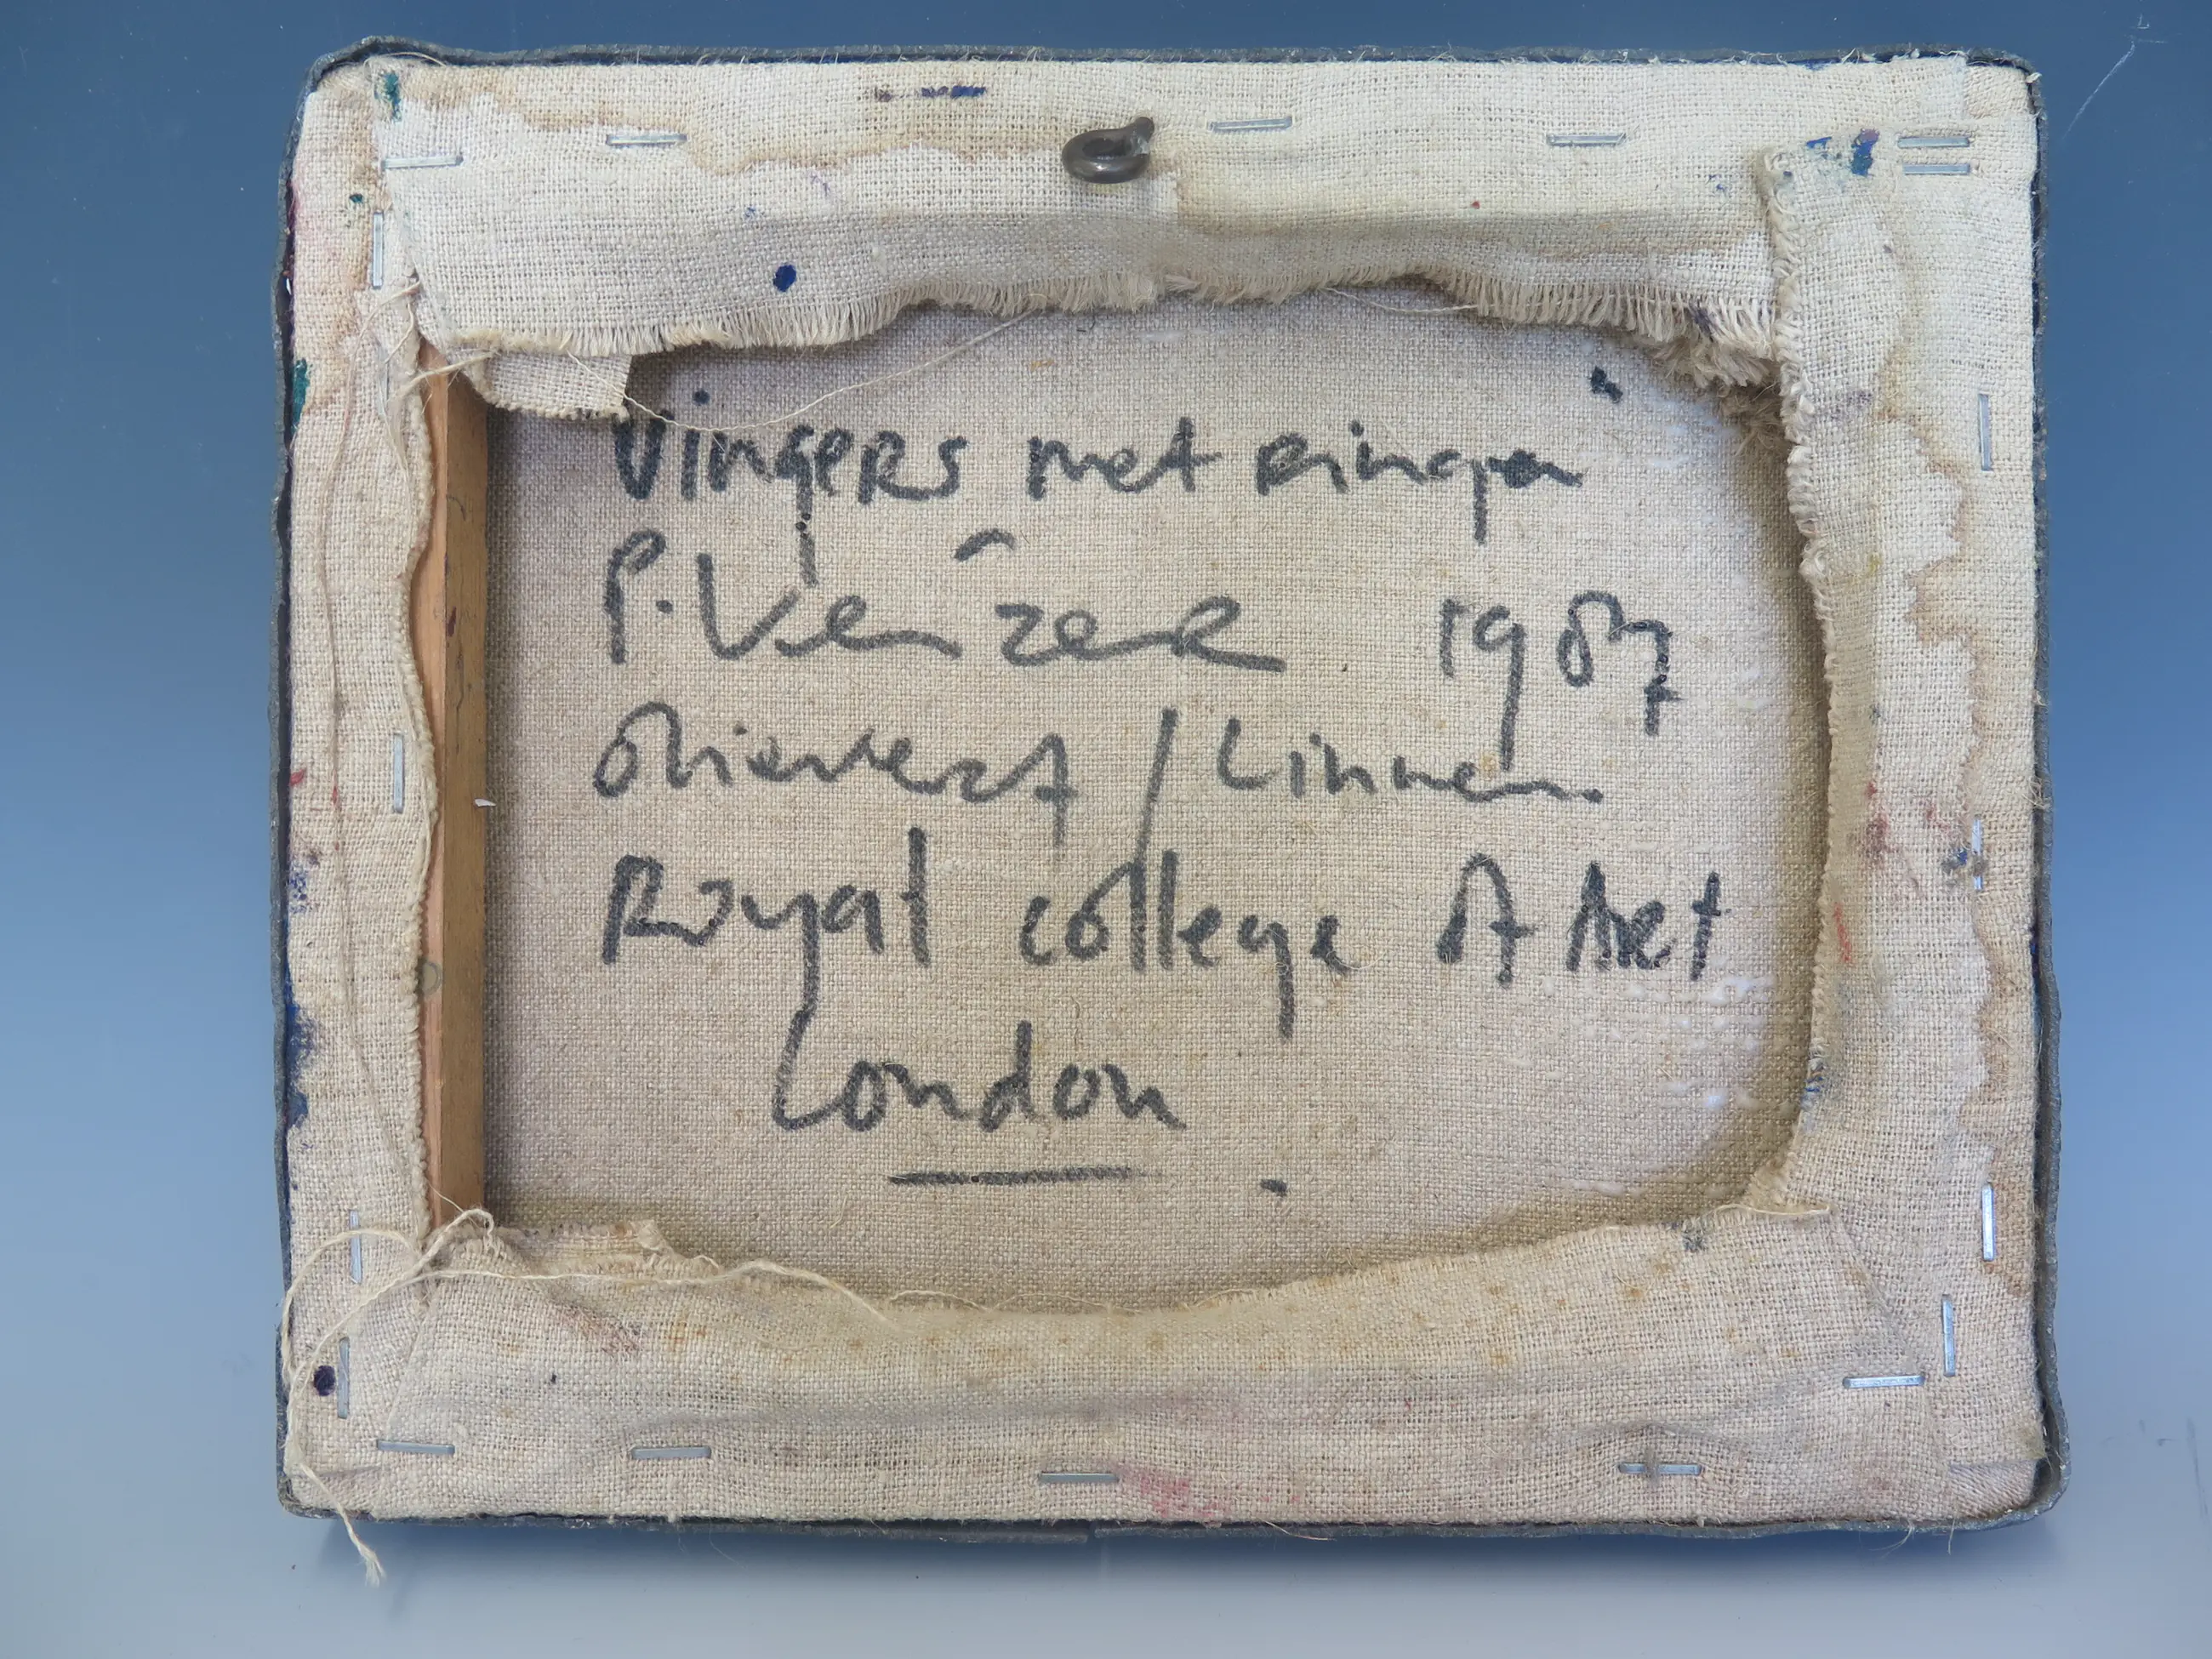 Vingers met ringen
P. Veîzer 1987
Olieverf / Linnen.
Royal college of Art
London